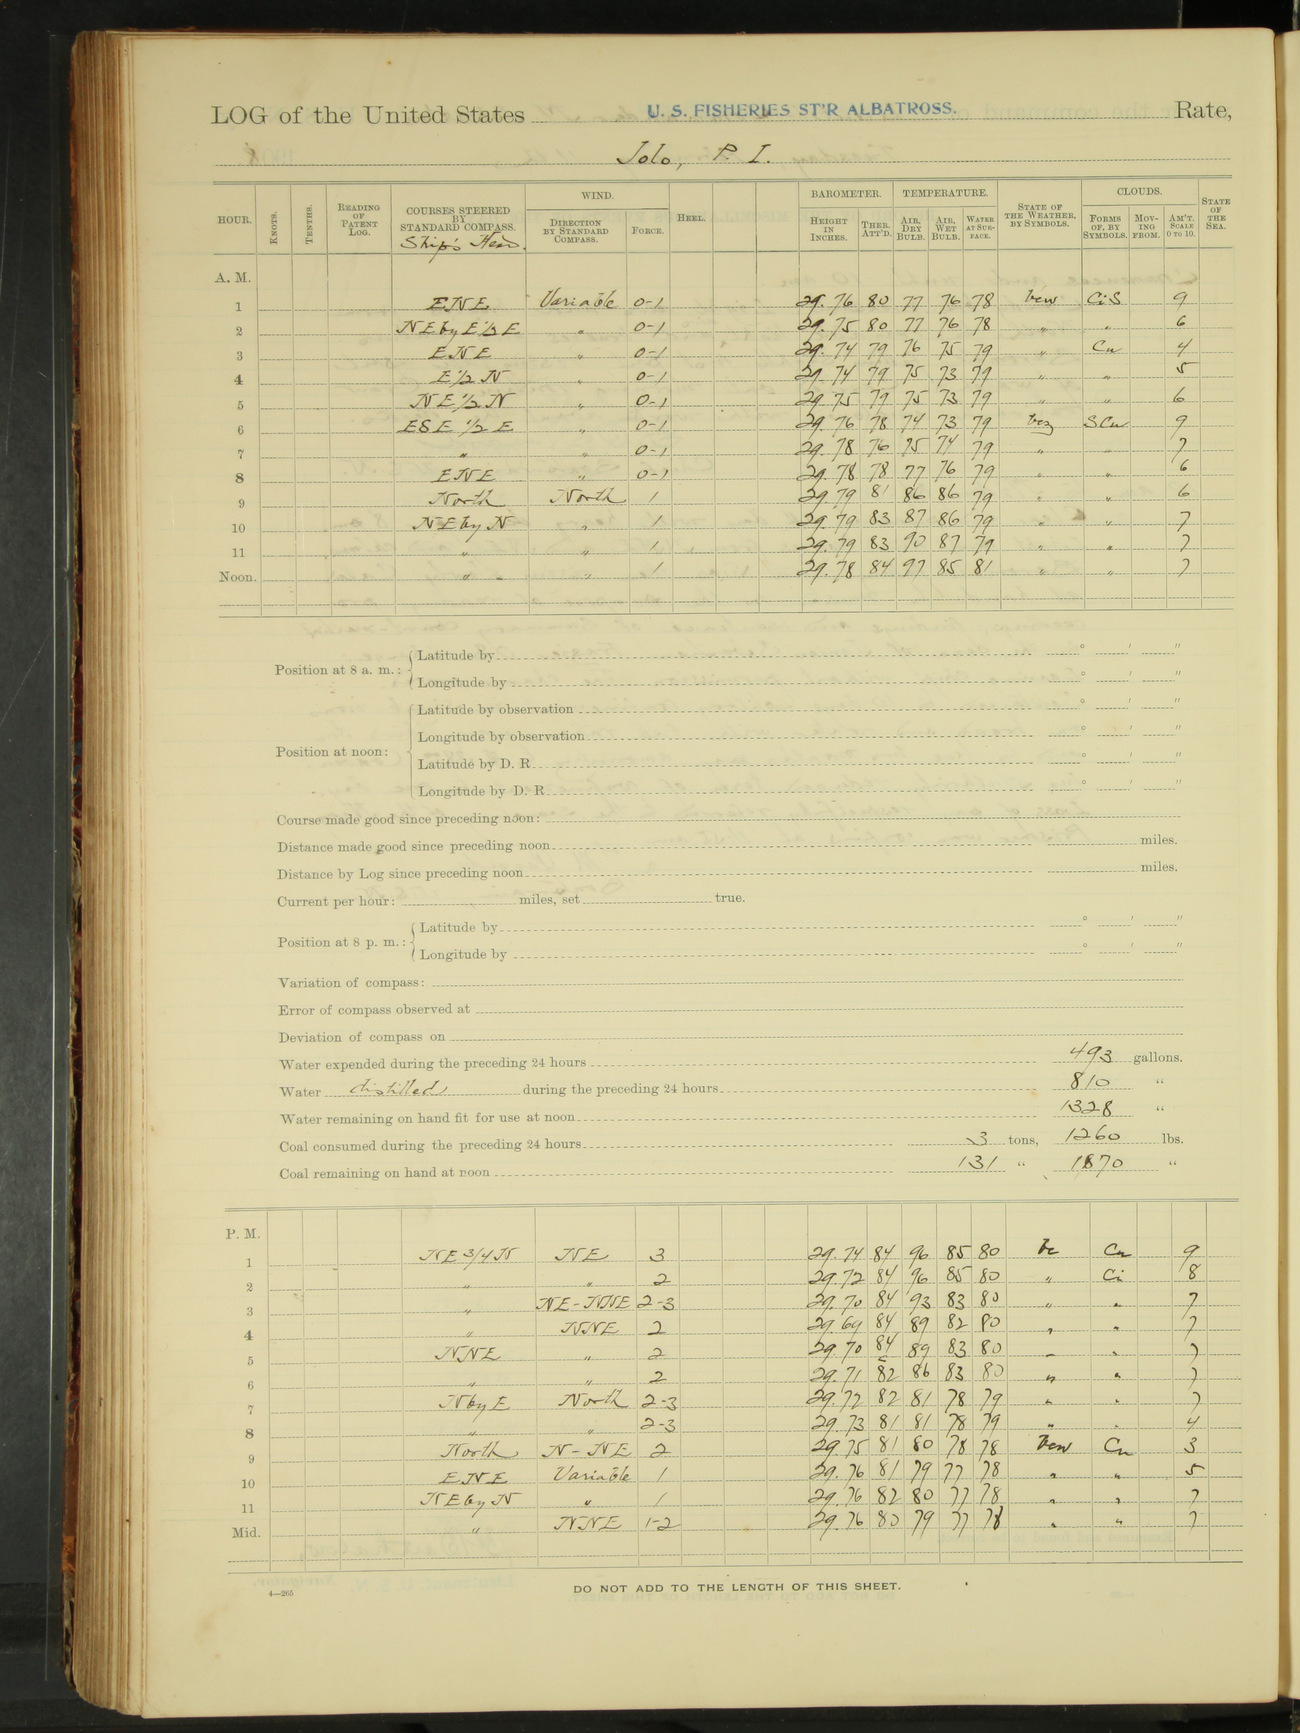 LOG of the United States U. S. FISHERIES ST'R ALBATROSS. Rate,
Jolo, P. I.
HOUR. KNOTS. TENTHS. READING OF PATENT LOG. COURSES STEERED BY STANDARD COMPASS. Ship's Head. WIND. DIRECTION BY STANDARD COMPASS. FORCE. HEEL. BAROMETER. HEIGHT IN INCHES. THER. ATT'D. TEMPERATURE. AIR, DRY BULB. AIR, WET BULB. WATER AT SURFACE. STATE OF THE WEATHER, BY SYMBOLS. CLOUDS. FORMS OF, BY SYMBOLS. MOVING FROM. AM'T. SCALE 0 TO 10. STATE OF THE SEA.
A. M.
1 ENE Variable 0-1 29.76 80 77 76 78 bcw CiS 9
2 NEbyE½E " 0-1 29.75 80 77 76 78 " " 6
3 ENE " 0-1 29.74 79 76 75 79 " Cu 4
4 E½N " 0-1 29.74 79 75 73 79 " " 5
5 NE½N " 0-1 29.75 79 75 73 79 " " 6
6 ESE½E " 0-1 29.76 78 74 73 79 bcz SCu 9
7 " " 0-1 29.78 76 75 74 79 " " 7
8 ENE " 0-1 29.78 78 77 76 79 " " 6
9 North North 1 29.79 81 86 86 79 " " 6
10 NEbyN " 1 29.79 83 87 86 79 " " 7
11 " " 1 29.79 83 90 87 79 " " 7
Noon. " " 1 29.78 84 97 85 81 " " 7
Position at 8 a. m.: Latitude by ° ' "
Longitude by ° ' "
Position at noon: Latitude by observation ° ' "
Longitude by observation ° ' "
Latitude by D. R. ° ' "
Longitude by D. R. ° ' "
Course made good since preceding noon:
Distance made good since preceding noon miles.
Distance by Log since preceding noon miles.
Current per hour: miles, set true.
Position at 8 p. m.: Latitude by ° ' "
Longitude by ° ' "
Variation of compass:
Error of compass observed at
Deviation of compass on
Water expended during the preceding 24 hours 493 gallons.
Water distilled during the preceding 24 hours 810 "
Water remaining on hand fit for use at noon 1328 "
Coal consumed during the preceding 24 hours 3 tons, 1260 lbs.
Coal remaining on hand at noon 131 " 1870 "
P. M.
1 NE3/4N NE 3 29.74 84 96 85 80 bc Cu 9
2 " " 2 29.72 84 96 85 80 " Ci 8
3 " NE-NNE 2-3 29.70 84 93 83 80 " " 7
4 " NNE 2 29.69 84 89 82 80 " " 7
5 NNE " 2 29.70 84 89 83 80 " " 7
6 " " 2 29.71 82 86 83 80 " " 7
7 NbyE North 2-3 29.72 82 81 78 79 " " 7
8 " " 2-3 29.73 81 81 78 79 " " 4
9 North N-NE 2 29.75 81 80 78 78 bcw Cu 3
10 ENE Variable 1 29.76 81 79 77 78 " " 5
11 NEbyN " 1 29.76 82 80 77 78 " " 7
Mid. " NNE 1-2 29.76 80 79 77 78 " " 7
4—265 DO NOT ADD TO THE LENGTH OF THIS SHEET.